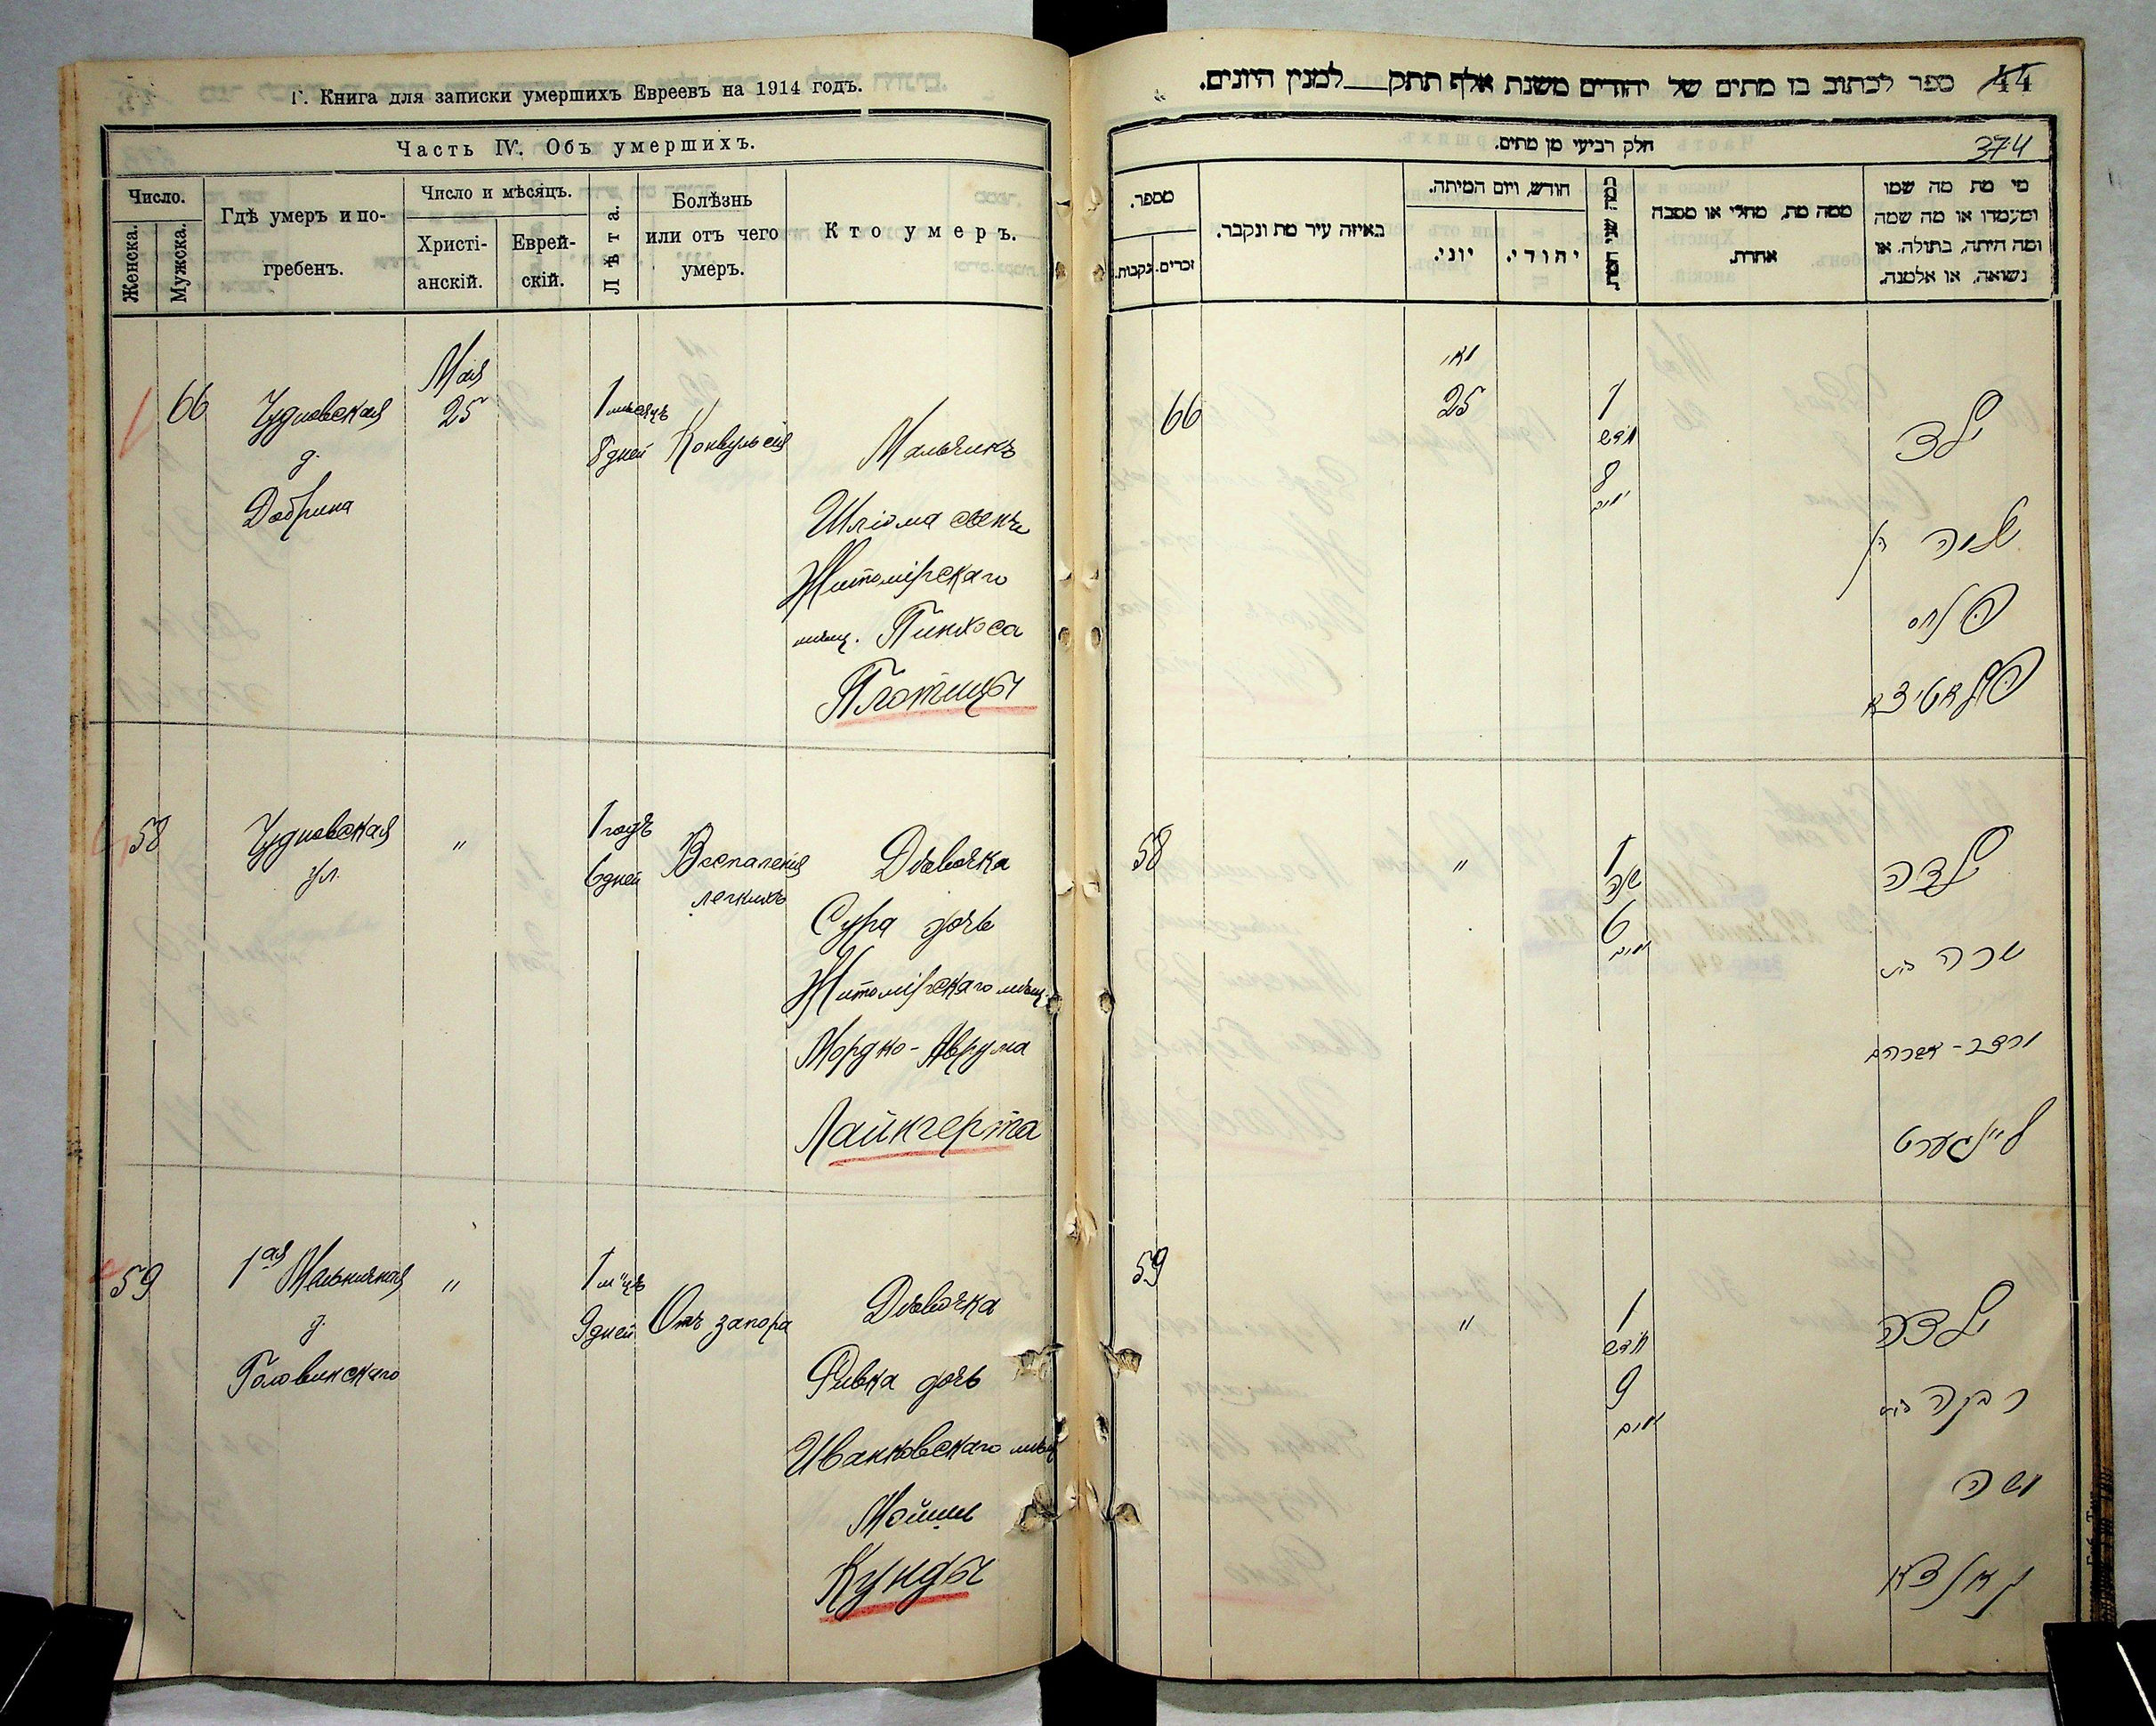 Г. Книга для записки умершихъ Евреевъ на 1914 годъ.
Часть IV. Объ умершихъ.
Число.
Женска.
Мужска.
Гдѣ умеръ и по-
гребенъ.
Число и мѣсяцъ.
Христі-
анскій.
Еврей-
скій.
Лѣта.
Болѣзнь
или отъ чего
умеръ.
Кто умеръ.
66
Чудновская
д.
Добрина
Мая
25
1 мѣсяцъ
8 дней
Конвульсія
Мальчикъ
Шліома сынъ
Житомірскаго
мѣщ. Пинхоса
Плотицы
58
Чудновская
ул.
"
1 годъ
6 дней
Воспаленія
легкихъ
Дѣвочка
Сура дочь
Житомірскаго мѣщ.
Мордко-Аврума
Лайнгерта
59
1ая Мельничная
д.
Головинскаго
"
1 м-цъ
9 дней
Отъ запора
Дѣвочка
Ривка дочь
Иванковскаго мѣщ
Мошы
Кунды
44
ספר לכתוב בו מתים של יהודים משנת אלף תתק למנין היונים.
374
חלק רביעי מן מתים.
מספר.
נקבות.
זכרים.
באיזה עיר מת ונקבר.
חודש, ויום המיתה.
יוני.
יהודי.
כמה שני המת.
ממה מת, מחלי או מסבה
אחרת.
מי מת מה שמו
ומעמדו או מה שמה
ומה היתה, בתולה או
נשואה, או אלמנה.
66
מאי
25
1
חדש
8
ימים
ילד
שלמה בן
פנחס
פלאטיצא
58
"
1
שנה
6
ימים
ילדה
שרה בת
מרדכי-אברהם
לײנגערט
59
"
1
חדש
9
ימים
ילדה
רבקה בת
משה
קונדא